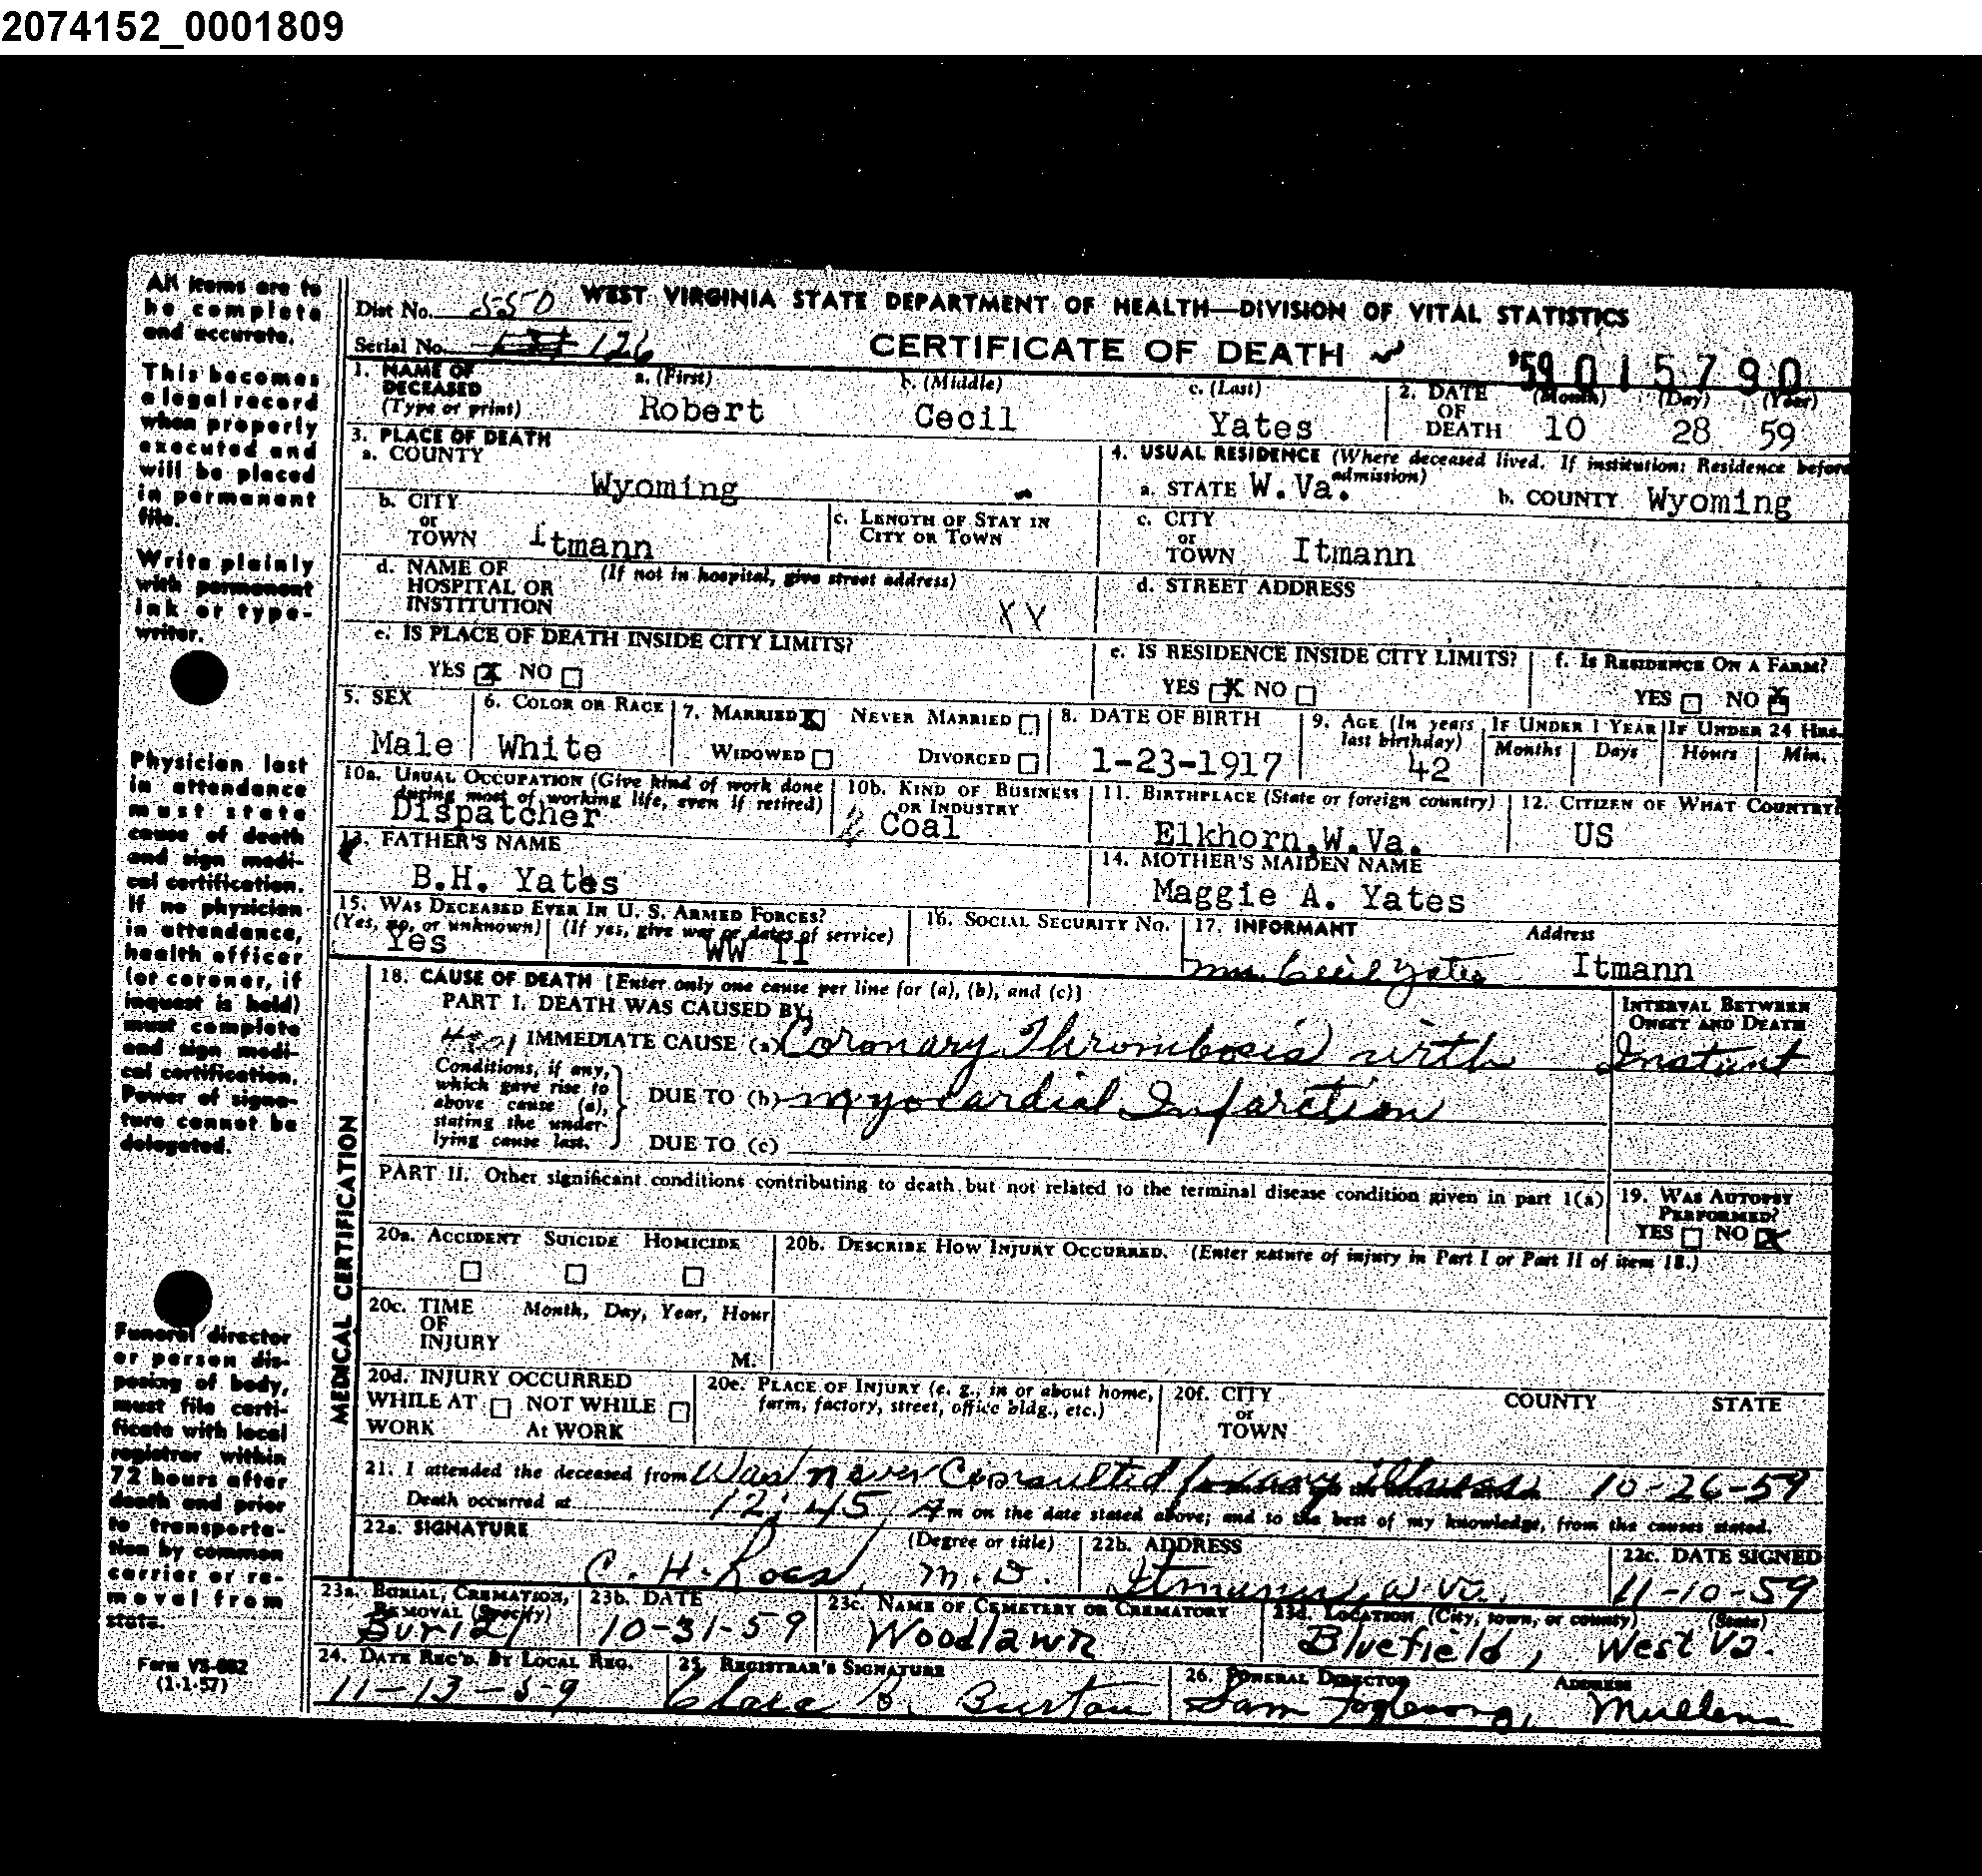 2074152_0001809
All items are to be complete and accurate.
This becomes a legal record when properly executed and will be placed in permanent file.
Write plainly with permanent ink or typewriter.
Physician last in attendance must state cause of death and sign medical certification. If no physician in attendance, health officer (or coroner, if inquest is held) must complete and sign medical certification. Power of signature cannot be delegated.
Funeral director or person disposing of body, must file certificate with local registrar within 72 hours after death and prior to transportation by common carrier or removal from state.
Form VS-002
(1-1-57)
Dist No. 550 WEST VIRGINIA STATE DEPARTMENT OF HEALTH—DIVISION OF VITAL STATISTICS
Serial No. 126 CERTIFICATE OF DEATH '59 015790
1. NAME OF DECEASED (Type or print) a. (First) Robert b. (Middle) Cecil c. (Last) Yates
2. DATE OF DEATH (Month) 10 (Day) 28 (Year) 59
3. PLACE OF DEATH
a. COUNTY Wyoming
4. USUAL RESIDENCE (Where deceased lived. If institution: Residence before admission)
a. STATE W.Va. b. COUNTY Wyoming
b. CITY or TOWN Itmann c. LENGTH OF STAY IN CITY OR TOWN
c. CITY or TOWN Itmann
d. NAME OF HOSPITAL OR INSTITUTION (If not in hospital, give street address) XY
d. STREET ADDRESS
e. IS PLACE OF DEATH INSIDE CITY LIMITS?
YES X NO
e. IS RESIDENCE INSIDE CITY LIMITS?
YES X NO
f. IS RESIDENCE ON A FARM?
YES NO X
5. SEX Male
6. COLOR OR RACE White
7. MARRIED X NEVER MARRIED
WIDOWED DIVORCED
8. DATE OF BIRTH 1-23-1917
9. AGE (In years last birthday) 42
IF UNDER 1 YEAR Months Days
IF UNDER 24 HRS. Hours Min.
10a. USUAL OCCUPATION (Give kind of work done during most of working life, even if retired) Dispatcher
10b. KIND OF BUSINESS OR INDUSTRY Coal
11. BIRTHPLACE (State or foreign country) Elkhorn, W.Va.
12. CITIZEN OF WHAT COUNTRY? US
13. FATHER'S NAME B.H. Yates
14. MOTHER'S MAIDEN NAME Maggie A. Yates
15. WAS DECEASED EVER IN U. S. ARMED FORCES?
(Yes, no, or unknown) Yes (If yes, give war or dates of service) WW II
16. SOCIAL SECURITY NO.
17. INFORMANT Mrs. Cecil Yates Address Itmann
MEDICAL CERTIFICATION
18. CAUSE OF DEATH [Enter only one cause per line for (a), (b), and (c)]
PART I. DEATH WAS CAUSED BY:
INTERVAL BETWEEN ONSET AND DEATH
4201 IMMEDIATE CAUSE (a) Coronary Thrombosis with Instant
Conditions, if any, which gave rise to above cause (a), stating the underlying cause last.
DUE TO (b) myocardial Infarction
DUE TO (c)
PART II. Other significant conditions contributing to death but not related to the terminal disease condition given in part 1(a)
19. WAS AUTOPSY PERFORMED?
YES NO X
20a. ACCIDENT SUICIDE HOMICIDE
20b. DESCRIBE HOW INJURY OCCURRED. (Enter nature of injury in Part I or Part II of item 18.)
20c. TIME OF INJURY Month, Day, Year, Hour M.
20d. INJURY OCCURRED
WHILE AT WORK NOT WHILE At WORK
20e. PLACE OF INJURY (e. g., in or about home, farm, factory, street, office bldg., etc.)
20f. CITY or TOWN COUNTY STATE
21. I attended the deceased from Was never Consulted for any illness 10-26-59
Death occurred at 12:45 A m on the date stated above; and to the best of my knowledge, from the causes stated.
22a. SIGNATURE C. H. Ross, (Degree or title) M.D.
22b. ADDRESS Itmann, W. Va.
22c. DATE SIGNED 11-10-59
23a. BURIAL, CREMATION, REMOVAL (Specify) Burial
23b. DATE 10-31-59
23c. NAME OF CEMETERY OR CREMATORY Woodlawn
23d. LOCATION (City, town, or county) (State) Bluefield, West Va.
24. DATE REC'D. BY LOCAL REG. 11-13-59
25. REGISTRAR'S SIGNATURE Clara B. Burton
26. FUNERAL DIRECTOR Sam Foglesong, ADDRESS Mullens